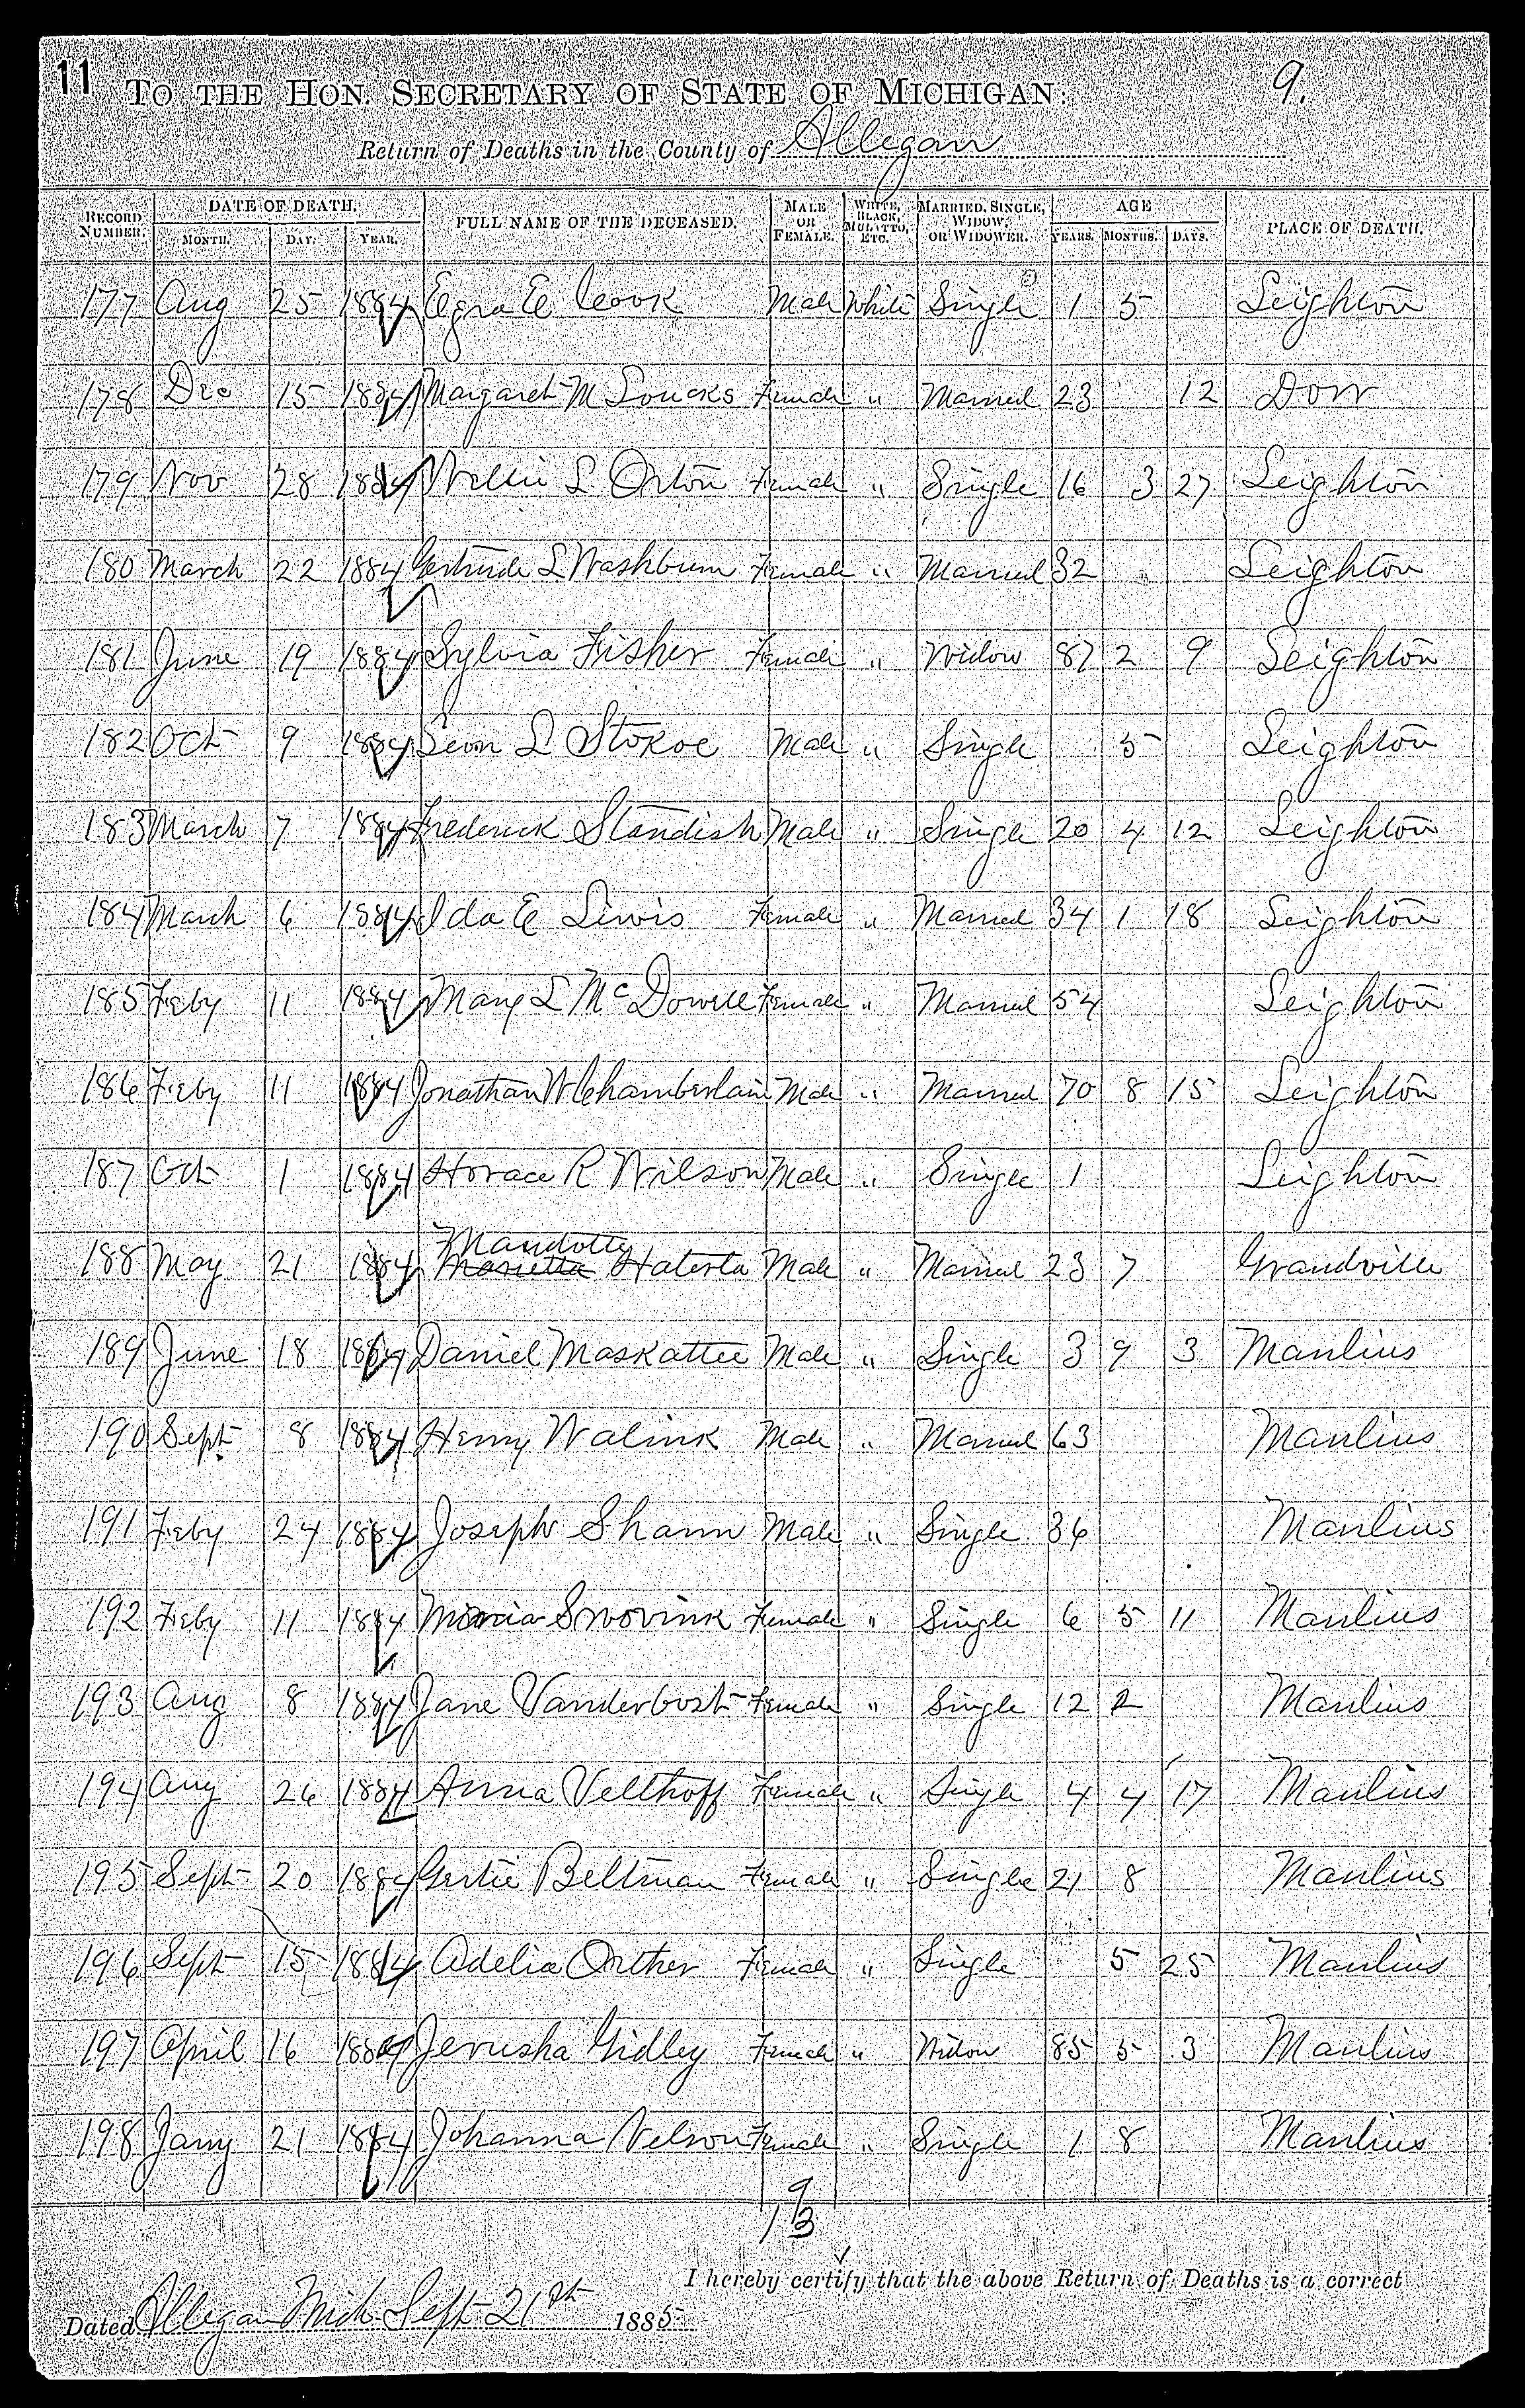 11 TO THE HON. SECRETARY OF STATE OF MICHIGAN: 9.
Return of Deaths in the County of Allegan
RECORD NUMBER. DATE OF DEATH. MONTH. DAY. YEAR. FULL NAME OF THE DECEASED. MALE OR FEMALE. WHITE, BLACK, MULATTO, ETC. MARRIED, SINGLE, WIDOW, OR WIDOWER. AGE YEARS. MONTHS. DAYS. PLACE OF DEATH.
177 Aug 25 1884 Ezra E Cook Male White Single 1 5 Leighton
178 Dec 15 1884 Margaret M Loucks Female " Married 23 12 Dorr
179 Nov 28 1884 Nellie L Orton Female " Single 16 3 27 Leighton
180 March 22 1884 Gertrude L Washburn Female " Married 32 Leighton
181 June 19 1884 Sylvia Fisher Female " Widow 87 2 9 Leighton
182 Oct 9 1884 Leon L Stokoe Male " Single 5 Leighton
183 March 7 1884 Frederick Standish Male " Single 20 4 12 Leighton
184 March 6 1884 Ida E Lewis Female " Married 34 1 18 Leighton
185 Feby 11 1884 Mary L McDowell Female " Married 54 Leighton
186 Feby 11 1884 Jonathan W Chamberlain Male " Married 70 8 15 Leighton
187 Oct 1 1884 Horace R Wilson Male " Single 1 Leighton
188 May 21 1884 Mandotty Marietta Haterta Male " Married 23 7 Grandville
189 June 18 1884 Daniel Maskattee Male " Single 3 9 3 Manlius
190 Sept 8 1884 Henry Walink Male " Married 63 Manlius
191 Feby 24 1884 Joseph Shann Male " Single 36 Manlius
192 Feby 11 1884 Smovink Female " Single 6 5 11 Manlius
193 Aug 8 1884 Jane Vanderbost Female " Single 12 2 Manlius
194 Aug 26 1884 Anna Velthoff Female " Single 4 4 17 Manlius
195 Sept 20 1884 Gertie Beltman Female " Single 21 8 Manlius
196 Sept 15 1884 Adelia Orther Female " Single 5 25 Manlius
197 April 16 1884 Jerusha Gidley Female " Widow 85 5 3 Manlius
198 Jany 21 1884 Johanna Nelson Female " Single 1 8 Manlius
9
13
I hereby certify that the above Return of Deaths is a correct
Dated Allegan Mich Sept 21st 1885